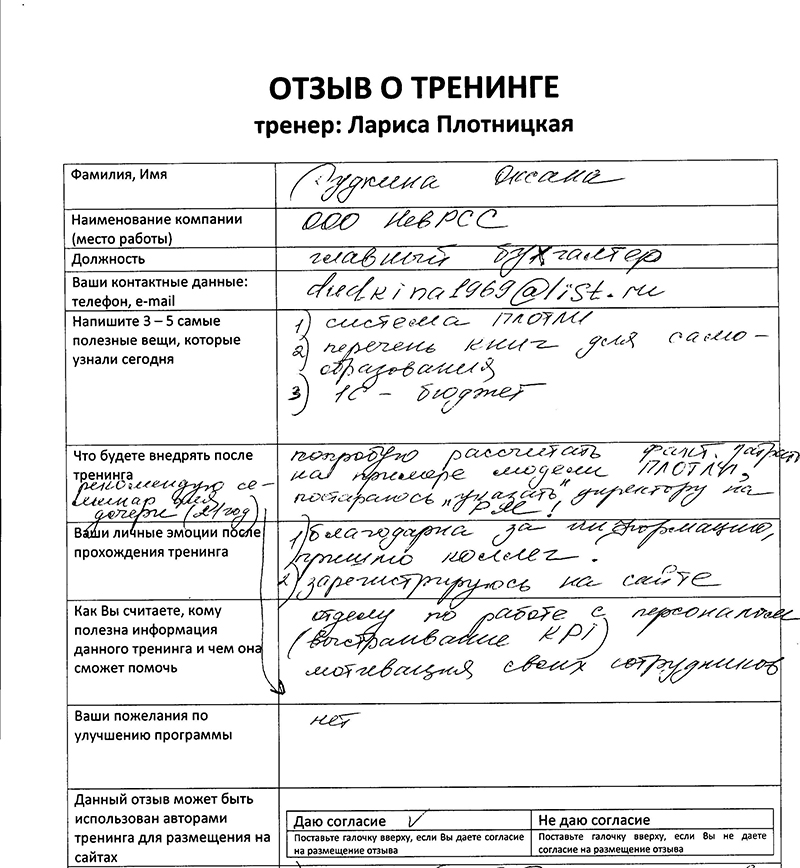 ОТЗЫВ О ТРЕНИНГЕ
тренер: Лариса Плотницкая
Фамилия, Имя
Дудкина Оксана
Наименование компании
(место работы)
ООО НевРСС
Должность
главный бухгалтер
Ваши контактные данные:
телефон, e-mail
dudkina1969@list.ru
Напишите 3 – 5 самые
полезные вещи, которые
узнали сегодня
1) система ПЛОТЛИ
2) перечень книг для само-
образования
3) 1С - бюджет
Что будете внедрять после
тренинга
попробую рассчитать факт. затраты
на примере модели
постараюсь "указать" директору на
рекомендую се-
минар для
дочери (21 год)
Ваши личные эмоции после
прохождения тренинга
1) благодарна за информацию,
пришлю коллег.
2) зарегистрируюсь на сайте
Как Вы считаете, кому
полезна информация
данного тренинга и чем она
сможет помочь
отделу по работе с персоналом
(выстраивание KPI)
мотивация своих сотрудников
Ваши пожелания по
улучшению программы
нет
Данный отзыв может быть
использован авторами
тренинга для размещения на
сайтах
Даю согласие ✓
Поставьте галочку вверху, если Вы даете согласие
на размещение отзыва
Не даю согласие
Поставьте галочку вверху, если Вы не даете
согласие на размещение отзыва